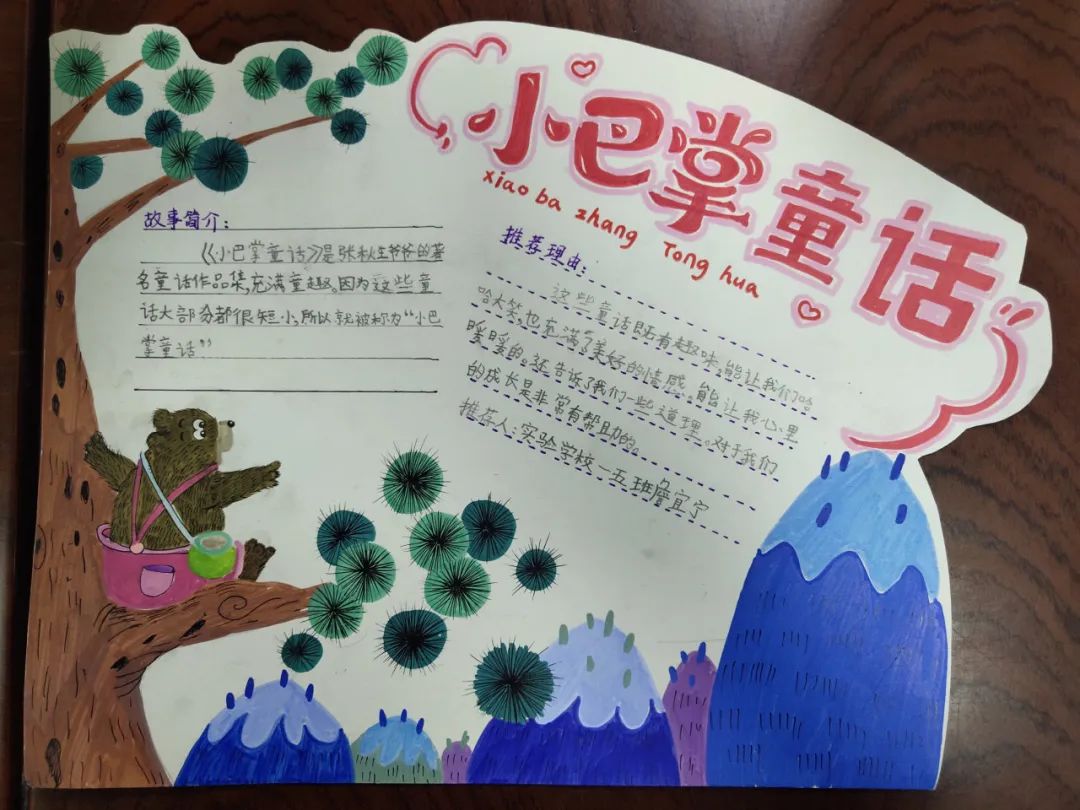 小巴掌童话
xiao ba zhang Tong hua
故事简介:
《小巴掌童话》是张秋生爷爷的著
名童话作品集,充满童趣。因为这些童
话大部分都很短小,所以就被称为“小巴
掌童话”
推荐理由:
这些童话既有趣味,能让我们哈
哈大笑,也充满了美好的情感。能让我心里
暖暖的。还告诉了我们一些道理。对于我们
的成长是非常有帮助的。
推荐人:实验学校一五班 宜宁